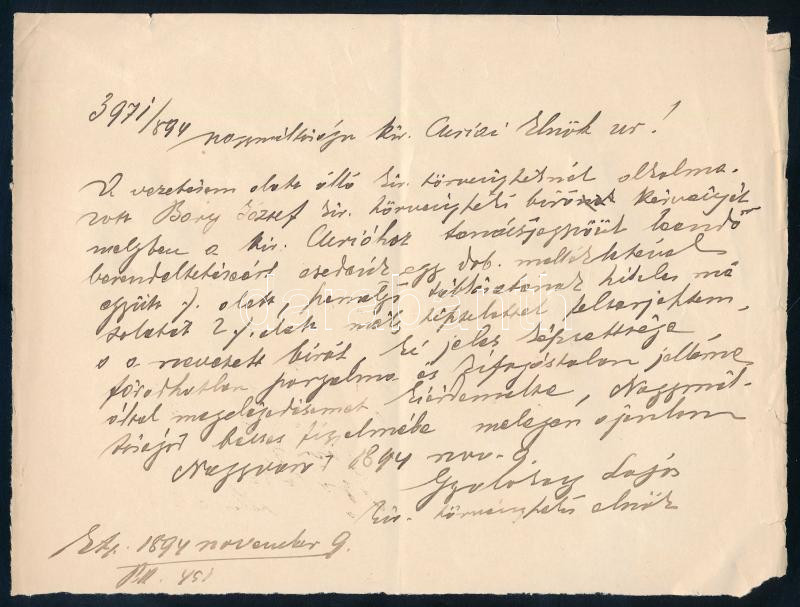 3971/894
nagyméltóságu kir. Curiai Elnök ur!
A vezetésem alatt álló kir. törvényszéknél alkalma-
zott Bary József kir. törvényszéki biró kérvényét
melyben a kir. Curiához tanácsjegyzőül leendő
berendeltetéseért esedezik egy drb. melléklettel
együtt ·/. alatt, személyi táblázatának hiteles má
solatát 2 ·/. alatt
s a nevezett birót ki jeles képzettsége,
fáradhatlan szorgalma és kifogástalan jelleme
által megelégedésemet kiérdemelte, Nagymél-
tóságod becses figyelmébe melegen ajánlom
Nagyvárad 1894 nov. 9.
Lajos
kir. törvényszéki elnök
Érk. 1894 november 9.
451
darabanth